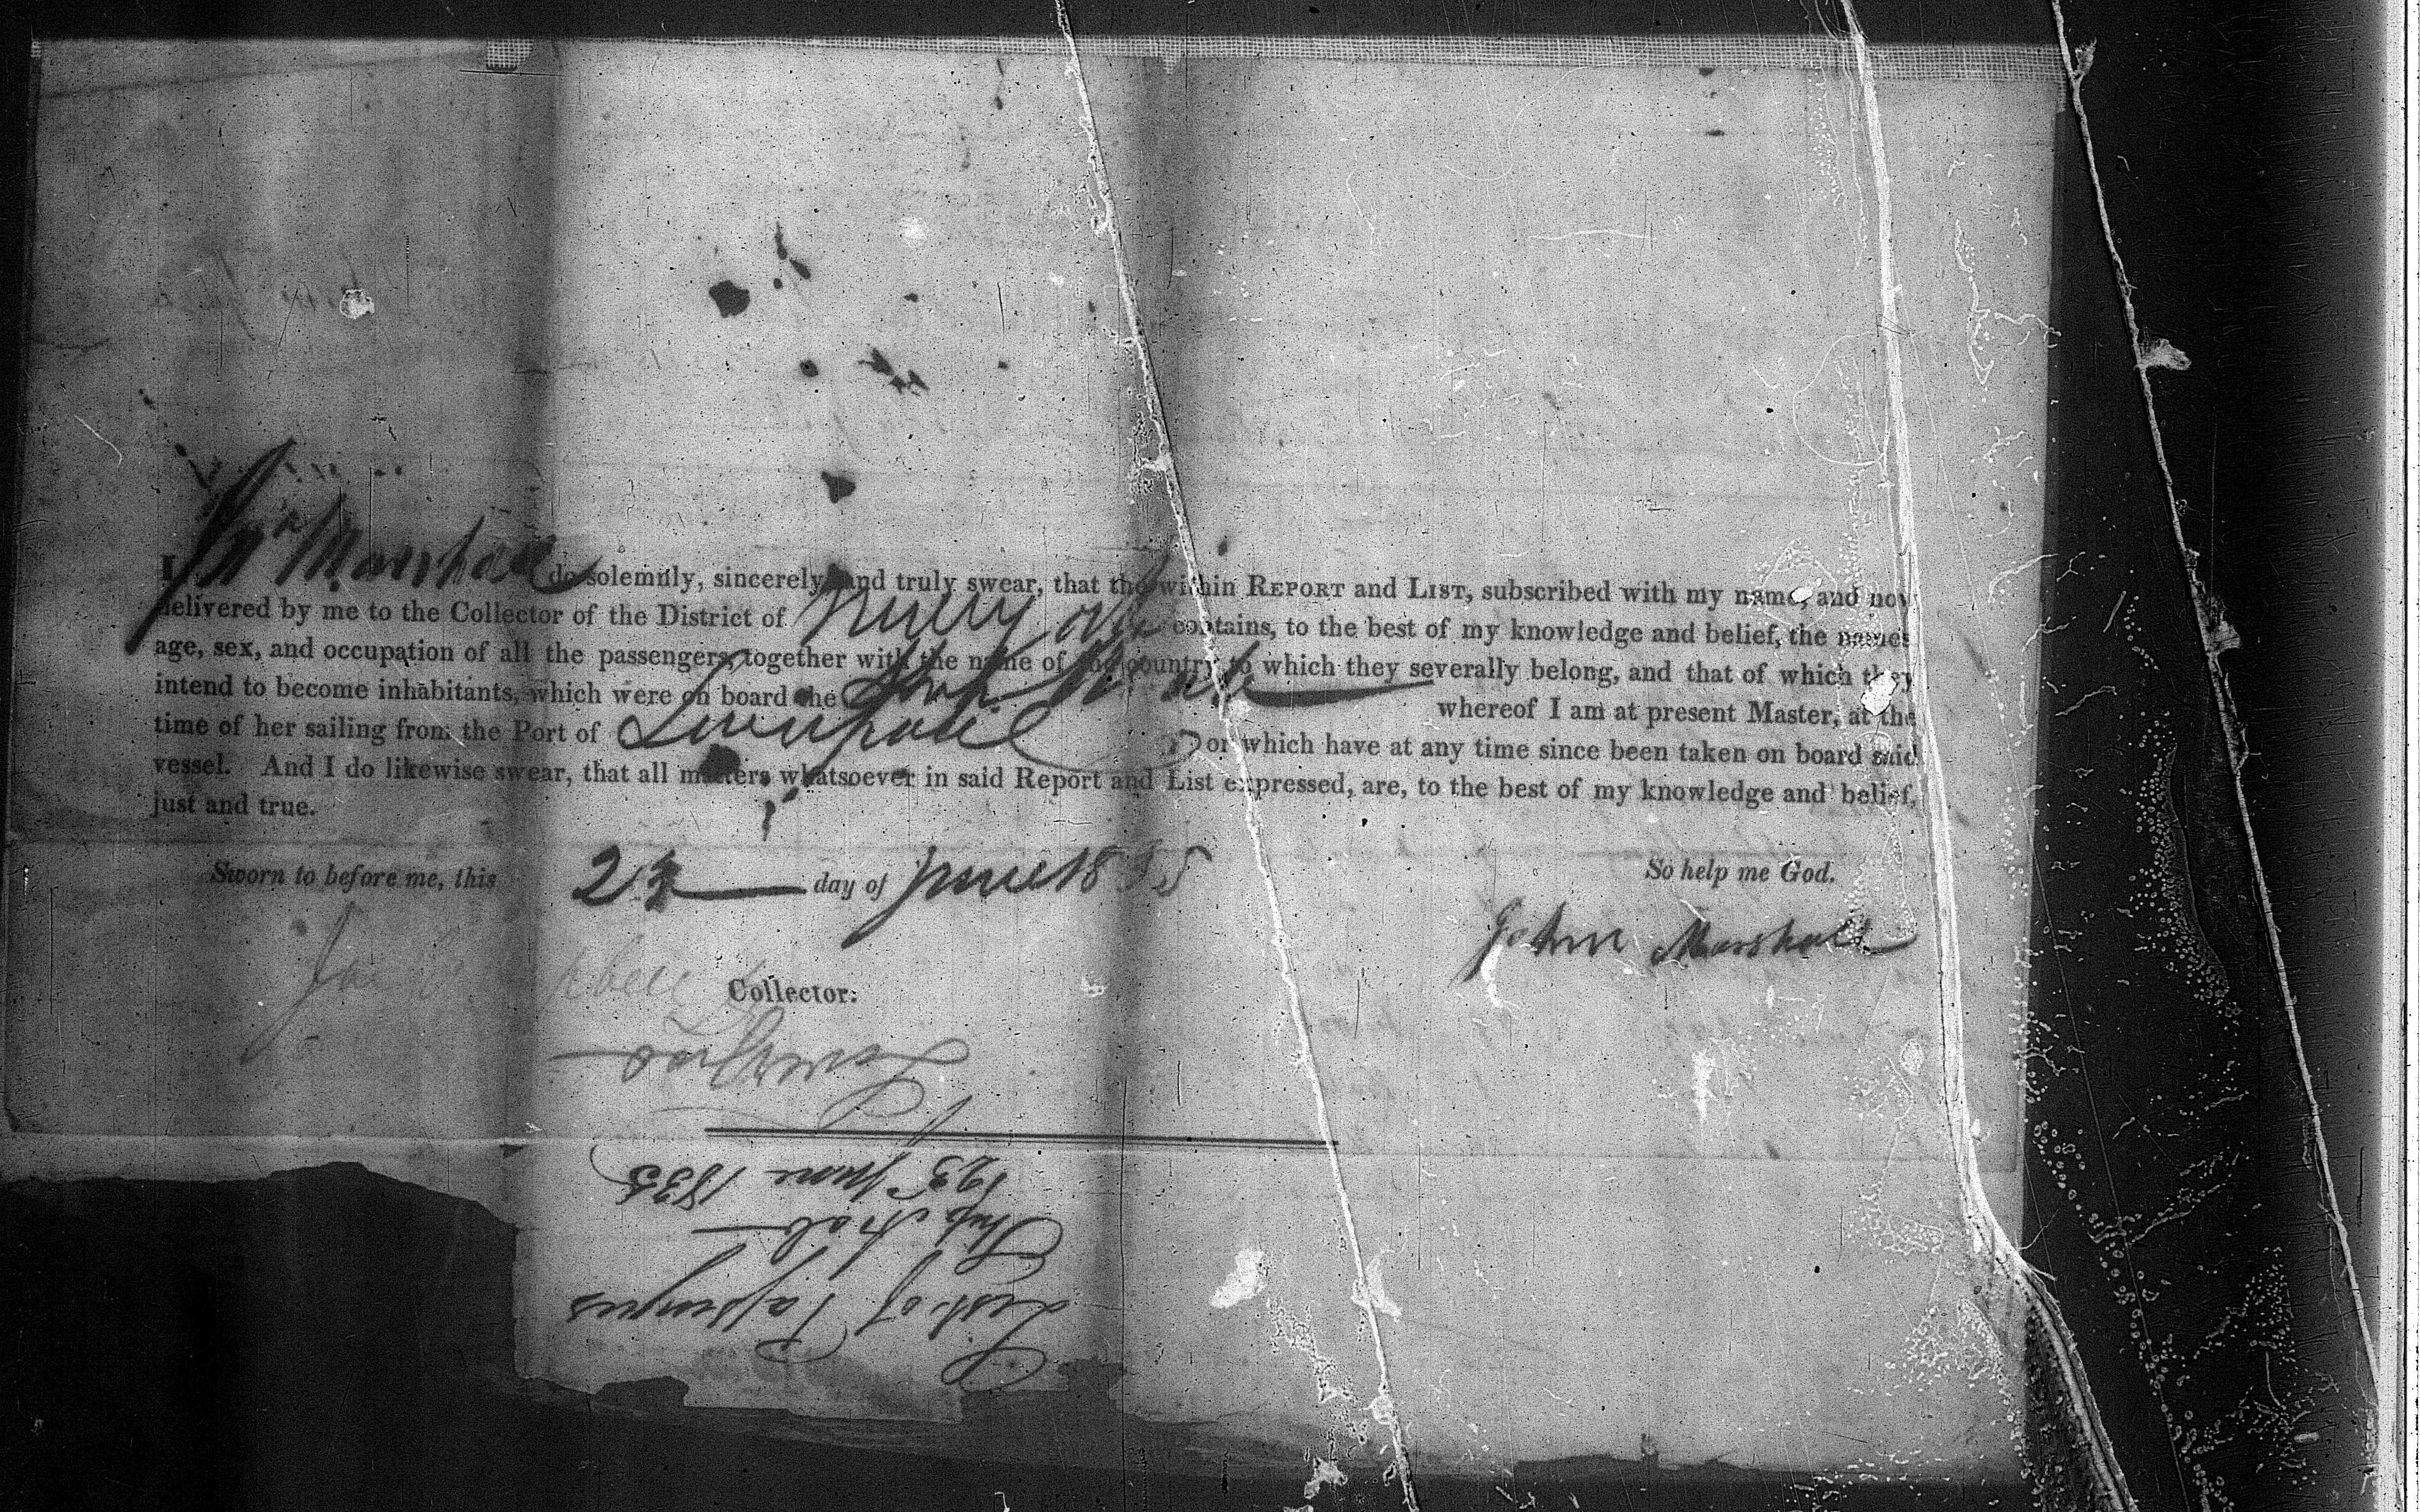 I Jno Marshall do solemnly, sincerely, and truly swear, that the within REPORT and LIST, subscribed with my name, and now
delivered by me to the Collector of the District of contains, to the best of my knowledge and belief, the names
age, sex, and occupation of all the passengers, together with the name of the country to which they severally belong, and that of which they
intend to become inhabitants, which were on board the Ship whereof I am at present Master, at the
time of her sailing from the Port of Liverpool or which have at any time since been taken on board said
vessel. And I do likewise swear, that all matters whatsoever in said Report and List expressed, are, to the best of my knowledge and belief,
just and true.
Sworn to before me, this 23 day of June 1835 So help me God.
John Marshall
Collector.
List of Passengers
Ship Arab
23 June 1835
Liverpool